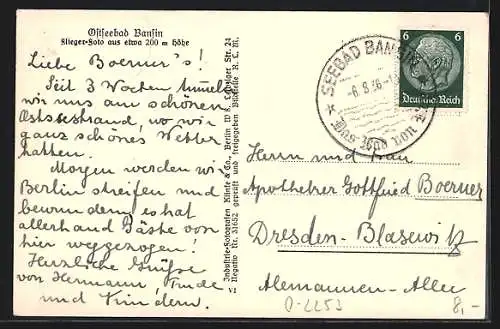 Ostseebad Bansin
Flieger-Foto aus etwa 200 m Höhe
Liebe Boerner's!
Seit 3 Wochen tummeln
wir uns am schönen
Ostseestrand, wo wir
ganz schönes Wetter
hatten.
Morgen werden wir
Berlin streifen und
bewundern, es hat
allerhand Gäste von
hier weggezogen!
Herzliche Grüße
von Hermann, Trude
und Kindern.
Industrie-Fotografen Klinke & Co., Berlin W 8, Leipziger Str. 24
Negativ Nr. 31652 geprüft und freigegeben Bildstelle R. L. M.
SEEBAD BANSIN
-6.8.36.-
Das Bad von
6 6
Deutsches Reich
Herrn und Frau
Apotheker Gottfried Boerner
Dresden-Blasewitz
Alemannen-Allee
0-2253
8,-